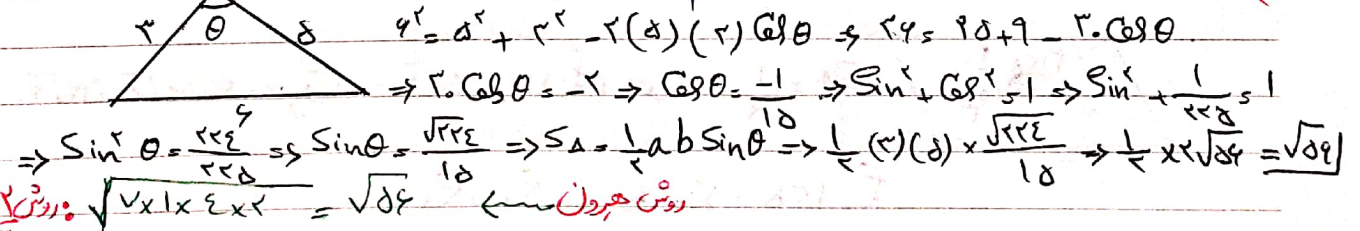 ۳ θ ۵ ۶² = ۵² + ۳² - ۲(۵)(۳) Cosθ ⇒ ۳۶ = ۲۵+۹ - ۳۰Cosθ
⇒ ۳۰Cosθ = -۲ ⇒ Cosθ = -۱/۱۵ ⇒ Sin² + Cos² = ۱ ⇒ Sin² + ۱/۲۲۵ = ۱
۶
⇒ Sin²θ = ۲۲۴/۲۲۵ ⇒ Sinθ = √۲۲۴/۱۵ ⇒ S∆ = ۱/۲ ab Sinθ ⇒ ۱/۲ (۳)(۵) × √۲۲۴/۱۵ ⇒ ۱/۲ × ۲√۵۶ = √۵۶
روش ۲: √۷×۱×۴×۲ = √۵۶ ← روش هرون